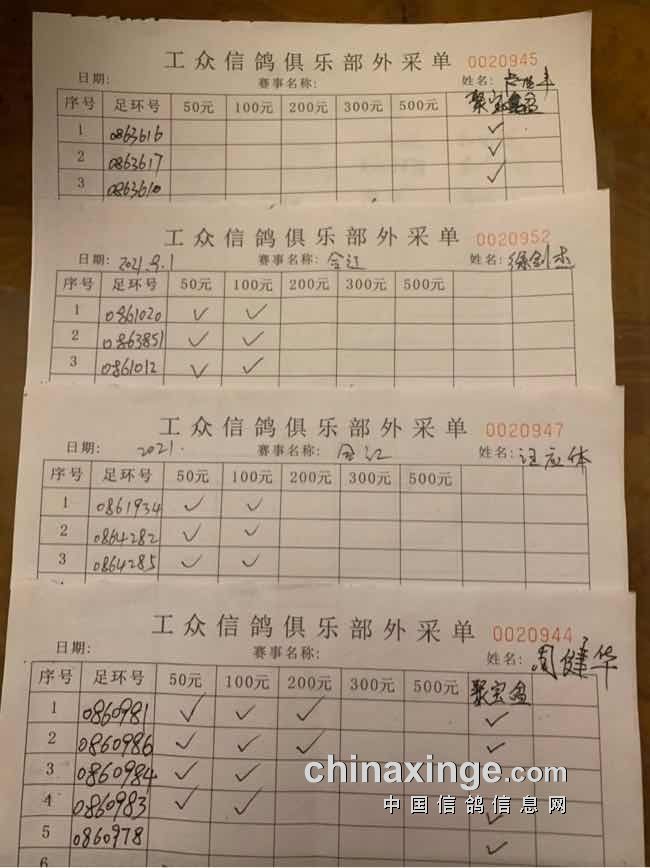 工众信鸽俱乐部外采单 0020945
日期: 赛事名称: 姓名:
序号 足环号 50元 100元 200元 300元 500元 聚宝盆
1 0863616 ✓
2 0863617 ✓
3 0863610 ✓
工众信鸽俱乐部外采单 0020952
日期: 2021.9.1 赛事名称: 合江 姓名: 徐剑杰
序号 足环号 50元 100元 200元 300元 500元
1 0861020 ✓ ✓
2 0863851 ✓ ✓
3 0861012 ✓ ✓
工众信鸽俱乐部外采单 0020947
日期: 2021. 赛事名称: 合江 姓名: 汪应体
序号 足环号 50元 100元 200元 300元 500元
1 0861934 ✓ ✓
2 0864282 ✓ ✓
3 0864285 ✓ ✓
工众信鸽俱乐部外采单 0020944
日期: 赛事名称: 姓名: 周健华
序号 足环号 50元 100元 200元 300元 500元 聚宝盆
1 0860981 ✓ ✓ ✓ ✓
2 0860986 ✓ ✓ ✓ ✓
3 0860984 ✓ ✓
4 0860983 ✓ ✓ ✓
5 0860978 ✓
6
chinaxinge.com
中国信鸽信息网